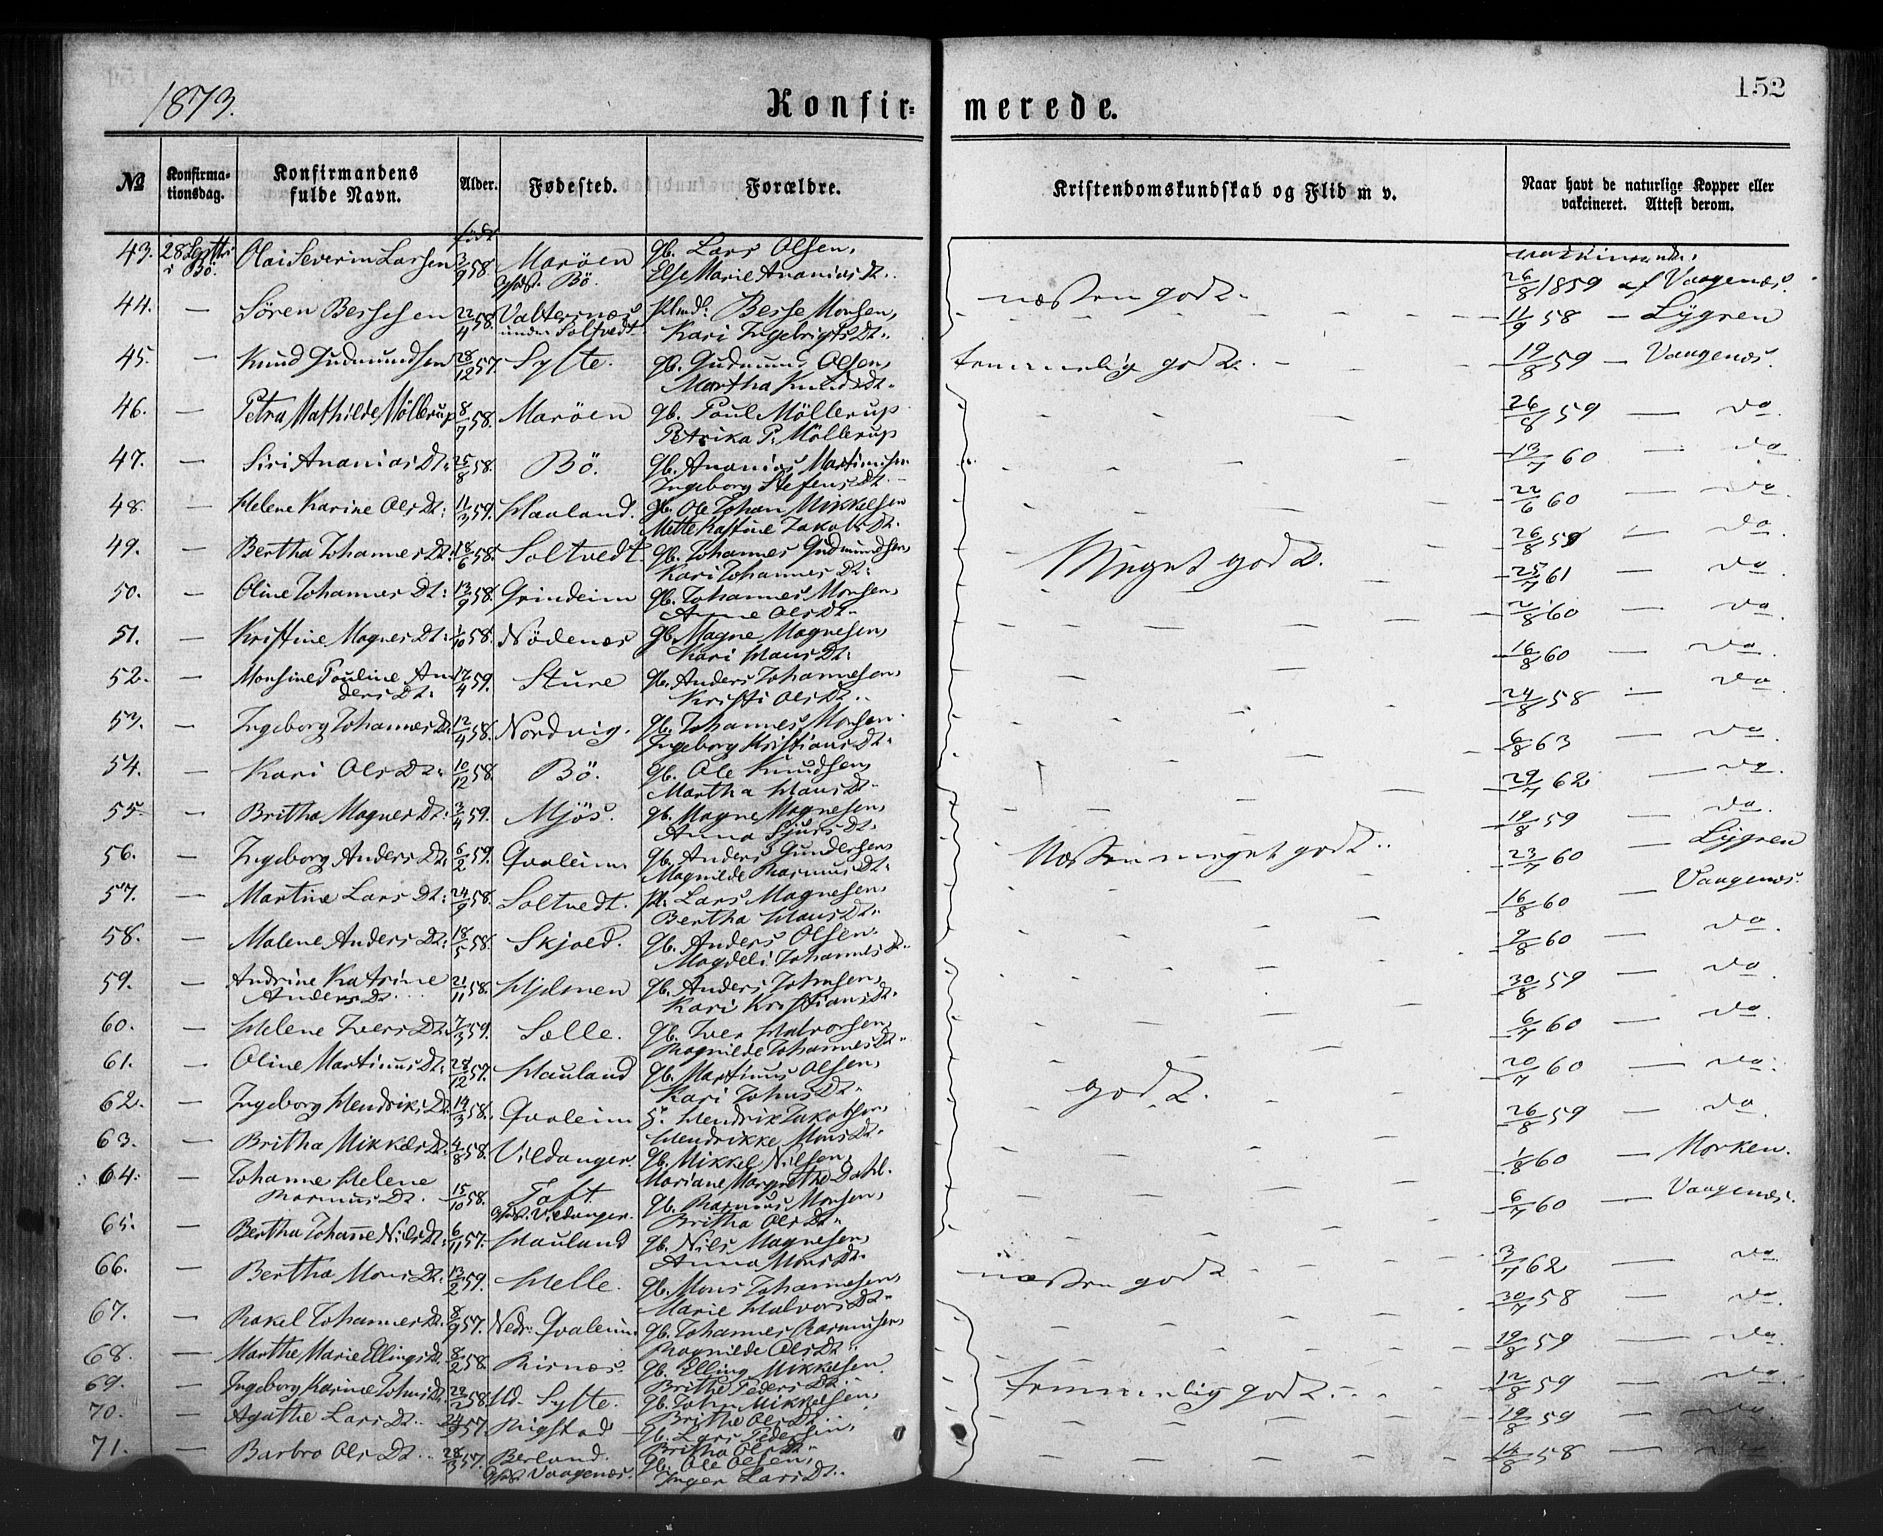 1873.
Konfir= merede.
152
No
Konfirma-tionsdag.
Konfirmandens fulde Navn.
Alder.
Fødested.
Forældre.
Kristendomskundskab og Flid m v.
Naar havt de naturlige Kopper eller vakcineret. Attest derom.
født
43. 28 Septbr i Bö. Olai Severin Larsen 3/9 58. Maröen Gbr. Lars Olsen,
Else Marie Ananias Dt. 26/8 1859 af Vaagenæs.
44. — Sören Bessesen 22/4 58. Valternæs under Soltvedt Besse Monsen,
Kari Ingebrigts Dt. næsten godt. 11/9 58 — Lygren
45. — Knud Gudmundsen 28/12 57. Sylte. gb. Gudmund Olsen,
Martha Knuds Dt. temmelig godt. 19/8 59 — Vaagenæs.
46. — Petra Mathilde Möllerup 8/7 58. Maröen gb. Poul Möllerup
Petrika P. Möllerup 26/8 59 — do
47. — Siri Ananias Dt. 25/8 58. Bö. gb. Ananias Martinusen
Ingeborg Stefens Dt. 13/7 60 — do
48. — Helene Karine Ols Dt. 11/3 59. Hauland. gb. Ole Johan Mikkelsen
Mette Kastine Jakobs Dt. 22/6 60 — do
49. — Bertha Johannes Dt. 18/6 58. Soltvedt. gb. Johannes Gudmundsen,
Kari Johannes Dt. Meget godt. 26/8 59 — do
50. — Oline Johannes Dt. 13/9 58. Grindeim gb. Johannes Monsen,
Anne Ols Dt. 25/7 61 — do
51. — Kristine Magnes Dt. 1/10 58. Nödenæs gb. Magne Magnesen,
Kari Hans Dt. 2/8 60 — do
52. — Monsine Pauline Anders Dt. 17/4 59. Sture gb. Anders Johannesen,
Kristi Ols Dt. 16/8 60 — do
53. — Ingeborg Johannes Dt. 12/4 58. Nordvig. gb. Johannes Monsen
Ingeborg Kristians Dt. 24/8 58 — do
54. — Kari Ols Dt. 10/12 58. Bö. gb. Ole Knudsen,
Martha Hans Dt. 6/8 63 — do
55. — Britha Magnes Dt. 3/4 59. Mjös. gb. Magne Magnesen,
Anna Sjurs Dt. 29/7 62 — do
56. — Ingeborg Anders Dt. 6/2 59. Qvaleim gb. Anders Gundersen
Magnilde Rasmus Dt. Næsten meget godt. 19/8 59 — do
57. — Martine Lars Dt. 24/9 58. Soltvedt. pl. Lars Magnesen,
Bertha Hans Dt. 23/7 60 — Lygren
58. — Malene Anders Dt. 18/5 58. Skjold. gb. Anders Olsen
Magdeli Johannes Dt. 16/8 60 — Vaagenæs.
59. — Andrine Katrine Anders Dt. 21/11 58. Hjelmen gb. Anders Johnsen,
Kari Kristians Dt. 9/8 60 — do
60. — Helene Ivers Dt. 7/3 59. Sælle. gb. Iver Halvorsen,
Ragnilde Johannes Dt. 30/8 59 — do
61. — Oline Martinus Dt. 28/12 57. Hauland gb. Martinus Olsen,
Kari Johns Dt. 6/7 60 — do
62. — Ingeborg Hendriks Dt. 14/3 58. Qvaleim Hendrik Jakobsen,
Hendrikke Mons Dt. godt. 20/7 60 — do
63. — Britha Mikkels Dt. 4/8 58. Vildanger. gb. Mikkel Nilsen,
Mariane Margrethe Dahl. 26/8 59 — do
64. — Johanne Helene Rasmus Dt. 15/10 58. Toft. Vildanger. gb. Rasmus Monsen,
Britha Ols Dt. 1/8 60 — Morken.
65. — Bertha Johanne Nils Dt. 6/11 57. Hauland gb. Nils Magnesen,
Anna Mons Dt. 6/7 60 — Vaagenæs.
66. — Bertha Mons Dt. 13/2 59. Helle. gb. Mons Johannesen,
Marie Halvors Dt. næsten godt 3/7 62 — do
67. — Rakel Johannes Dt. 8/9 57. Nedr. Qvaleim gb. Johannes Rasmusen,
Ragnilde Ols Dt. 30/7 58 — do
68. — Marthe Marie Ellings Dt. 8/2 58. Risnæs. gb. Elling Mikkelsen
Brithe Peders Dt. 19/8 59 — do
69. — Ingeborg Karine Johns Dt. 22/2 58. Sylte. gb. John Mikkelsen,
Brithe Ols Dt. temmelig godt. 12/8 59 — do
70. — Agathe Lars Dt. 24/9 57. Rigstad gb. Lars Pedersen,
Britha Ols Dt. 19/8 59 — do
71. — Barbro Ols Dt. 28/3 57. Berland. Vaagenæs. gb. Ole Olsen,
Inger Lars Dt. 14/8 58 — do